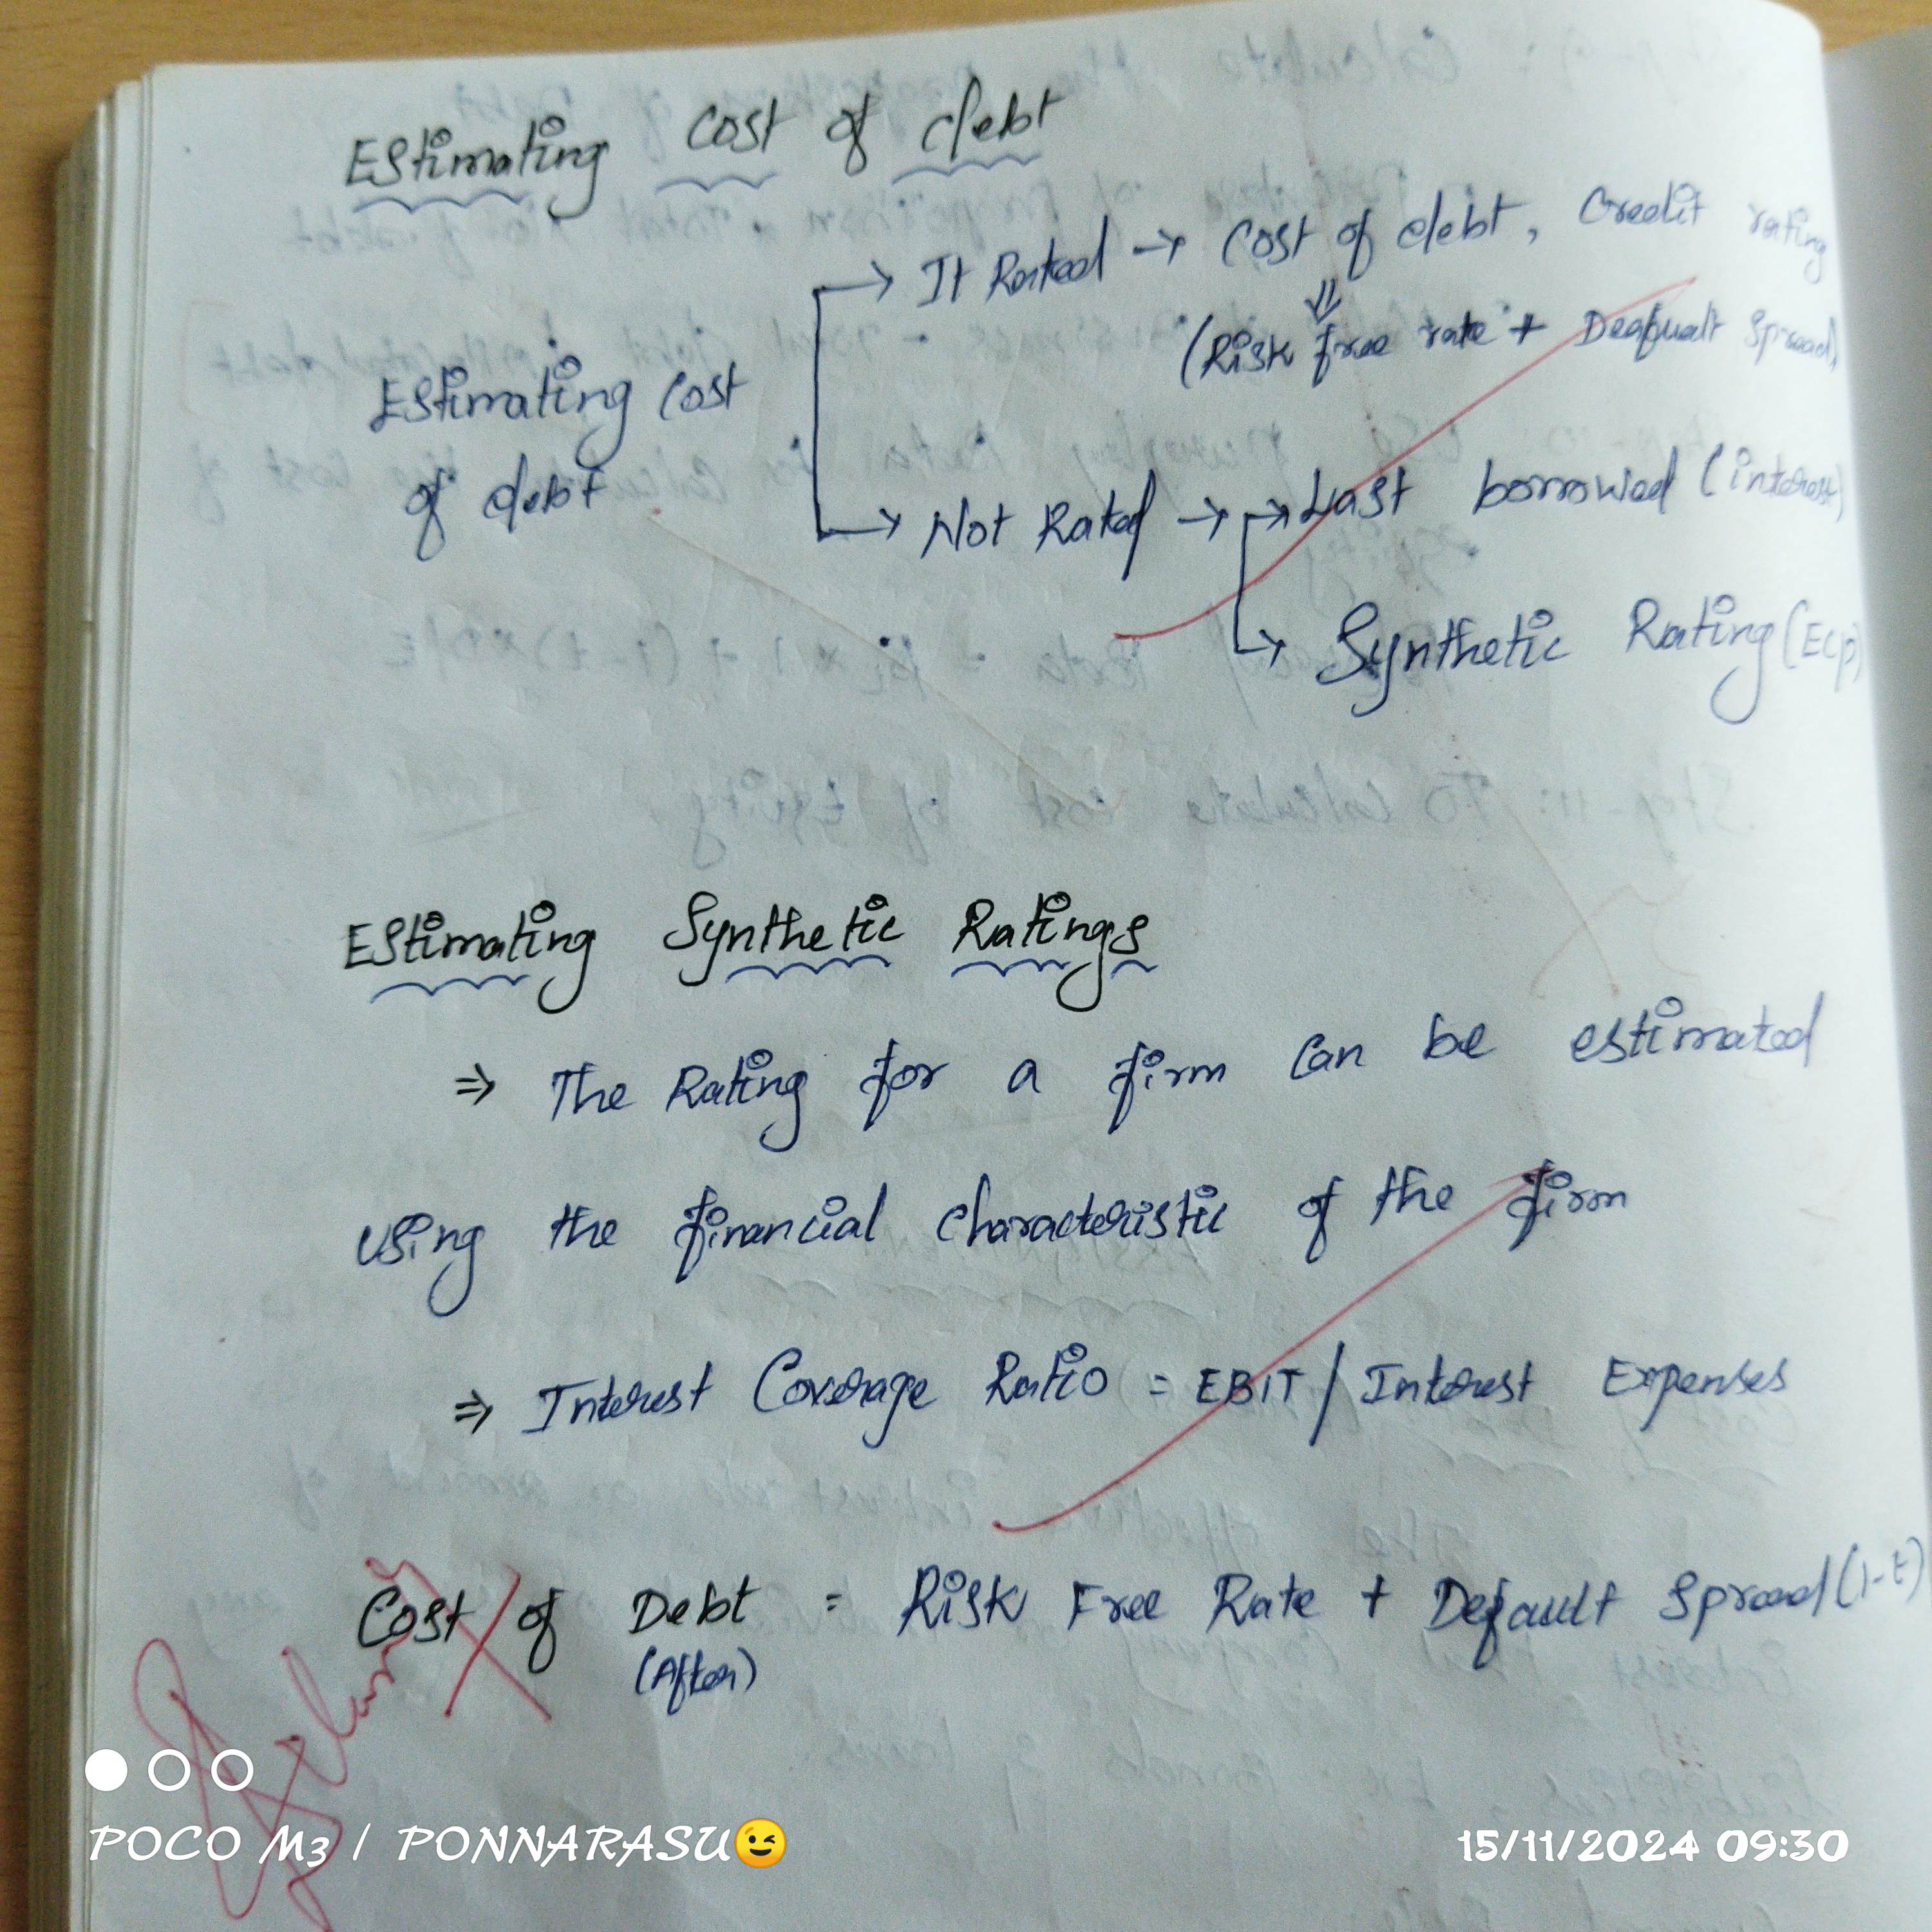 Estimating Cost of debt
It Rated → Cost of debt, Credit rating
(Risk free rate + Deafualt Spread)
Estimating Cost
of debt
Not Rated → Last borrowed (interest)
Synthetic Rating (Ecp)
Estimating Synthetic Ratings
⇒ The Rating for a firm Can be estimated
using the financial Characteristic of the firm
⇒ Interest Coverage Ratio = EBIT / Interest Expenses
Cost of Debt = Risk Free Rate + Default Spread (1-t)
(After)
POCO M3 | PONNARASU😉
15/11/2024 09:30